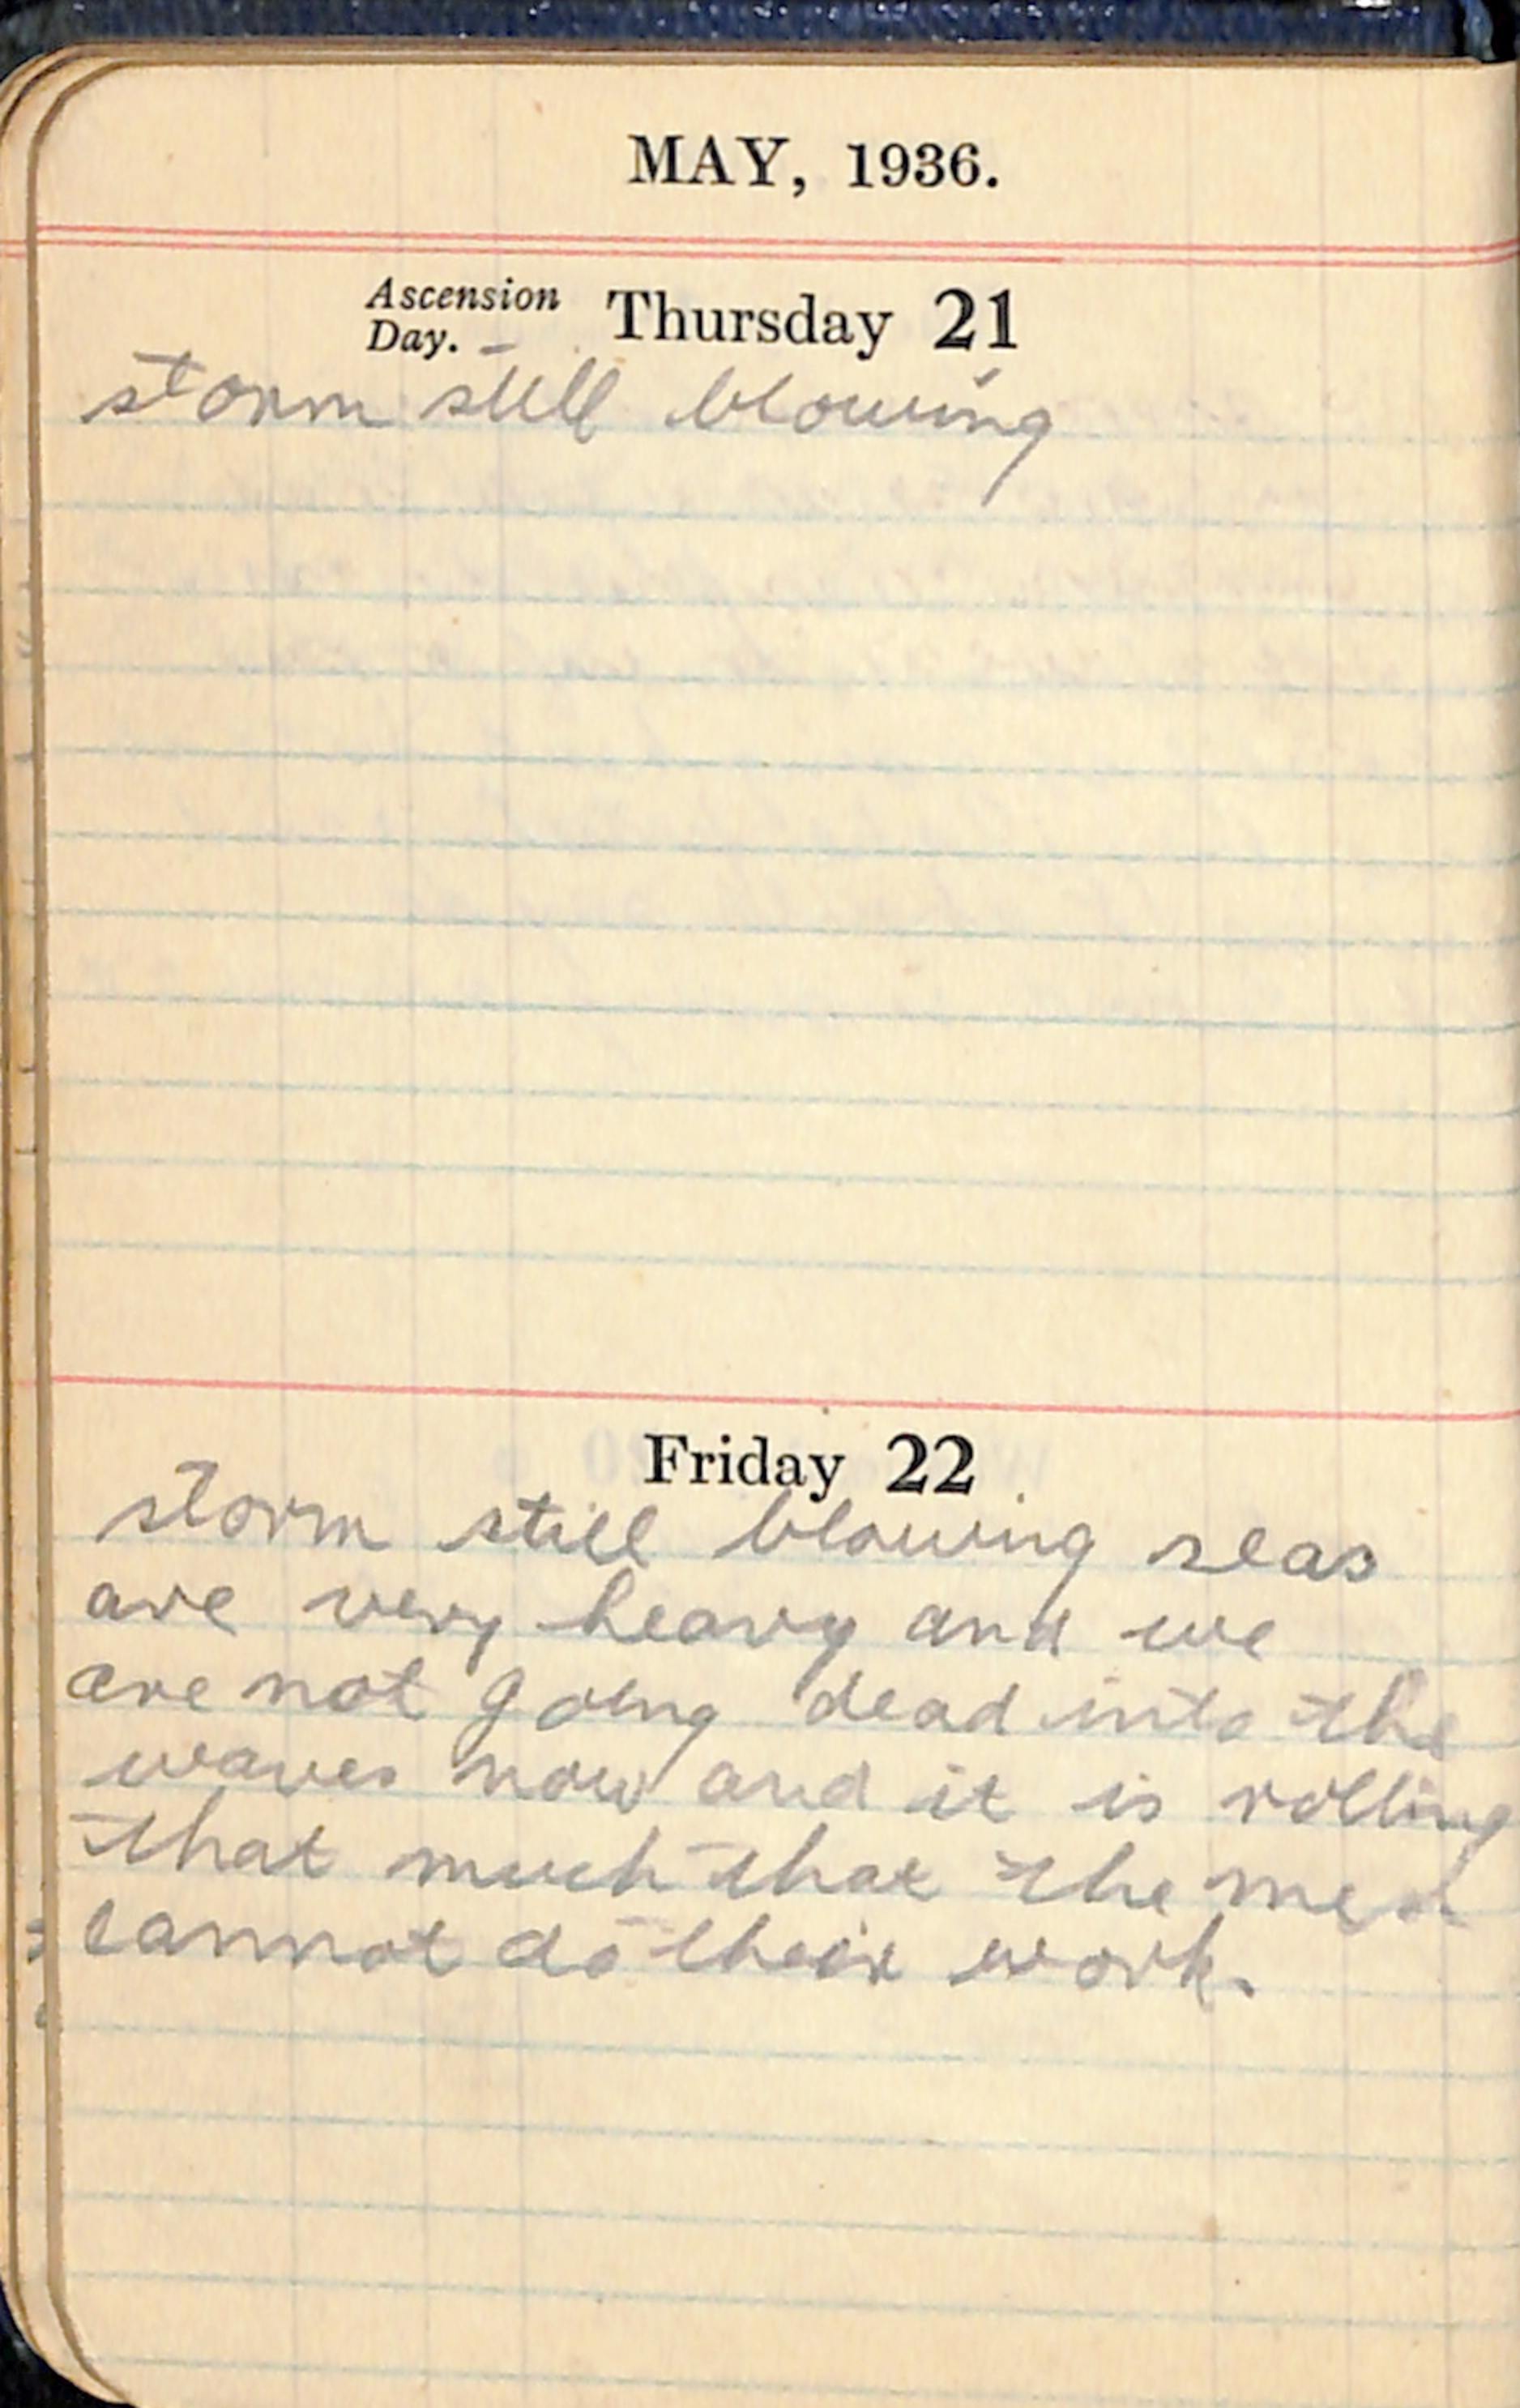 MAY, 1936.
Ascension Day. Thursday 21
storm still blowing
Friday 22
storm still blowing seas
are very heavy and we
are not going dead into the
waves now and it is rolling
that much that the men
cannot do their work.